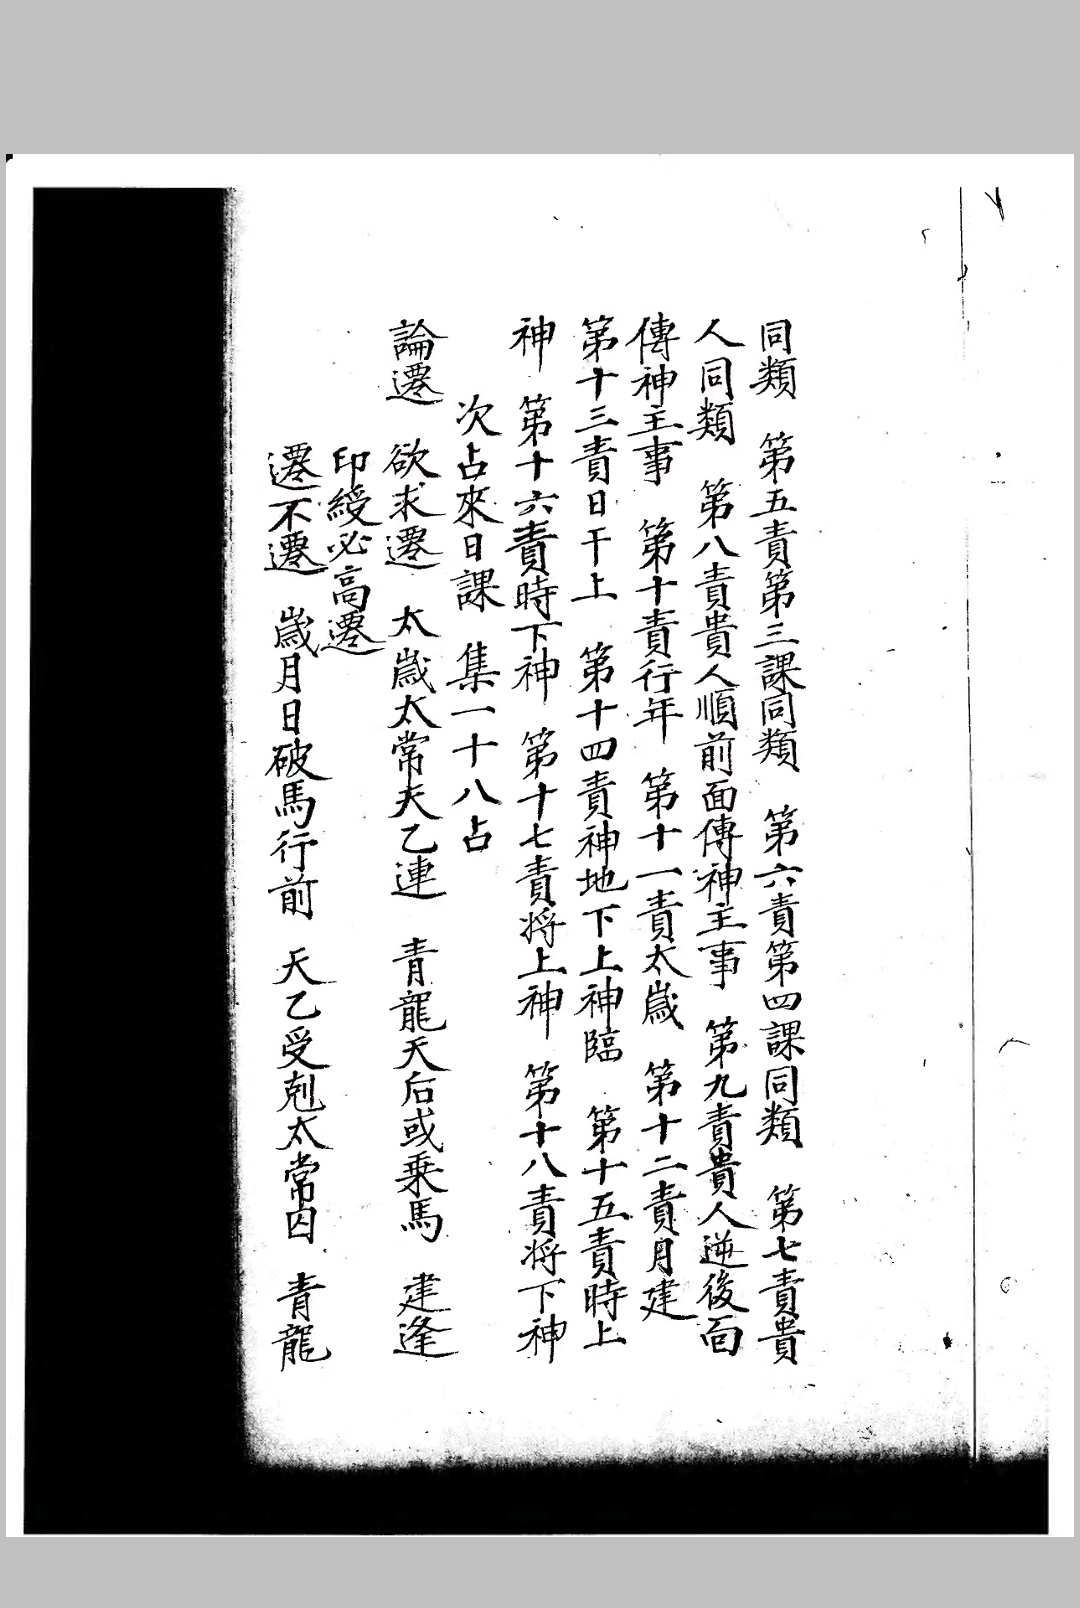 同類　第五責第三課同類　第六責第四課同類　第七責貴
人同類　第八責貴人順前面傳神主事　第九責貴人逆後面
傳神主事　第十責行年　第十一責太歲　第十二責月建
第十三責日干上　第十四責神地下上神臨　第十五責時上
神　第十六責時下神　第十七責将上神　第十八責将下神
次占來日課　集一十八占
論遷　欲求遷　太歲太常天乙連　青龍天后或乗馬　建逢
印綬必高遷
遷不遷　歲月日破馬行前　天乙受剋太常囚　青龍